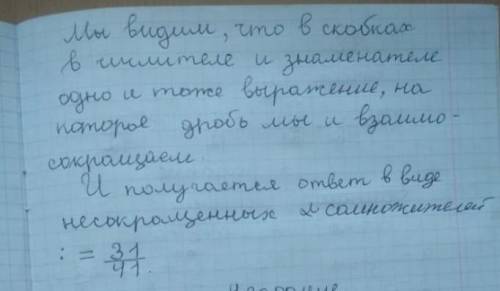 Мы видим, что в скобках
в числителе и знаменателе
одно и тоже выражение, на
которое дробь мы и взаимо-
сокращаем.
И получается ответ в виде
несокращенных 2х сомножителей
: = 31/41.